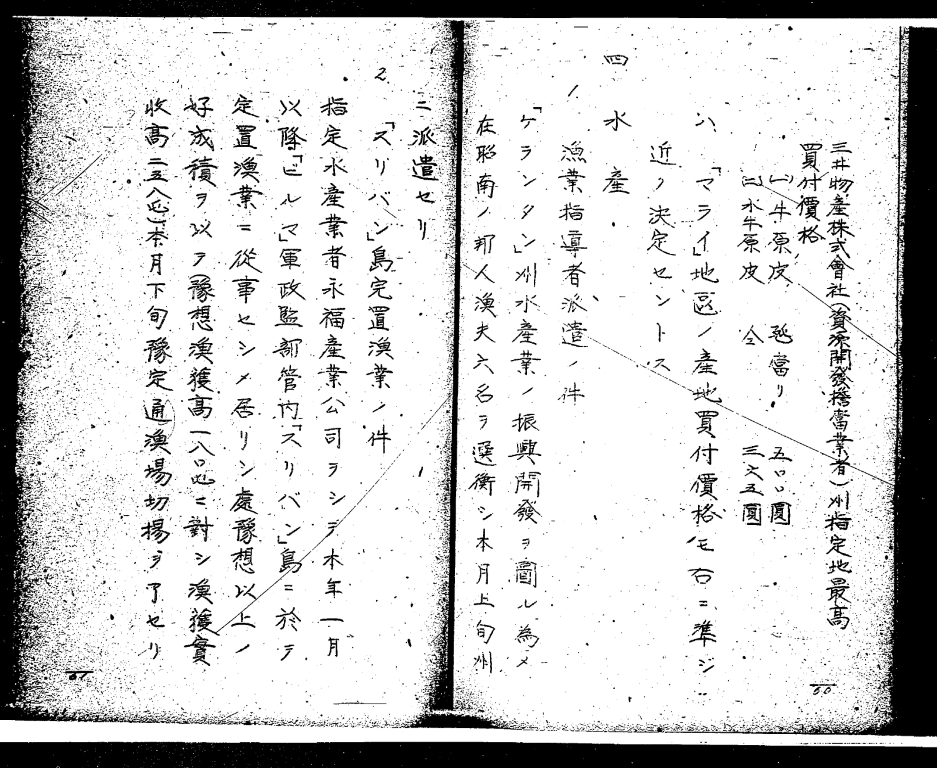 三井物產株式會社(資源開發擔當業者)州指定地最高
買付價格
(一)牛原皮 瓲當リ 五〇〇圓
(二)水牛原皮 仝 三六五圓
ハ、「マライ」地區ノ產地買付價格モ右ニ準ジ
近ク決定セントス
四 水產
1 漁業指導者派遣ノ件
「ケランタン」州水產業ノ振興開發ヲ圖ル為メ
在昭南ノ邦人漁夫六名ヲ選衡シ本月上旬州
60
ニ派遣セリ
2 「スリバン」島定置漁業ノ件
指定水產業者永福產業公司ヲシテ本年一月
以降「ビルマ」軍政監部管内「スリバン」島ニ於テ
定置漁業ニ從事セシメ居リシ處豫想以上ノ
好成積ヲ以テ(豫想漁獲高一八〇瓲ニ對シ漁獲實
收高二五八瓲)本月下旬豫定通漁場切揚ヲ了セリ
61